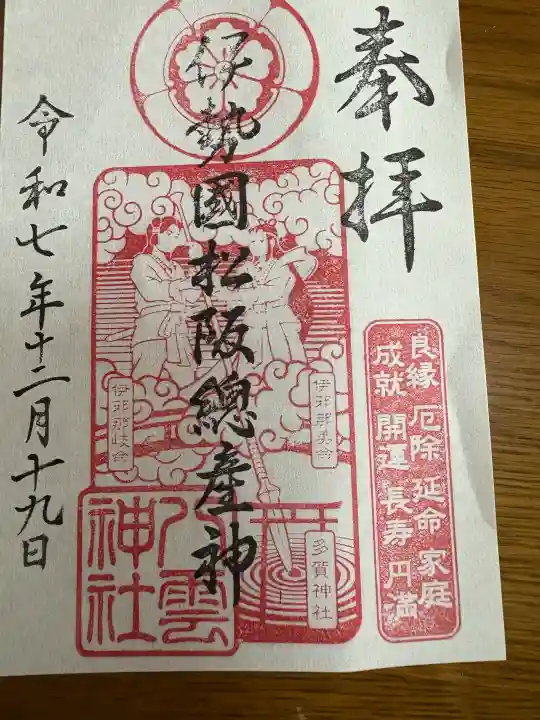 奉拝
良縁 厄除 延命 家庭
成就 開運 長寿 円満
伊勢國松阪總産神
伊邪那美命
多賀神社
伊邪那岐命
八雲
神社
令和七年十二月十九日